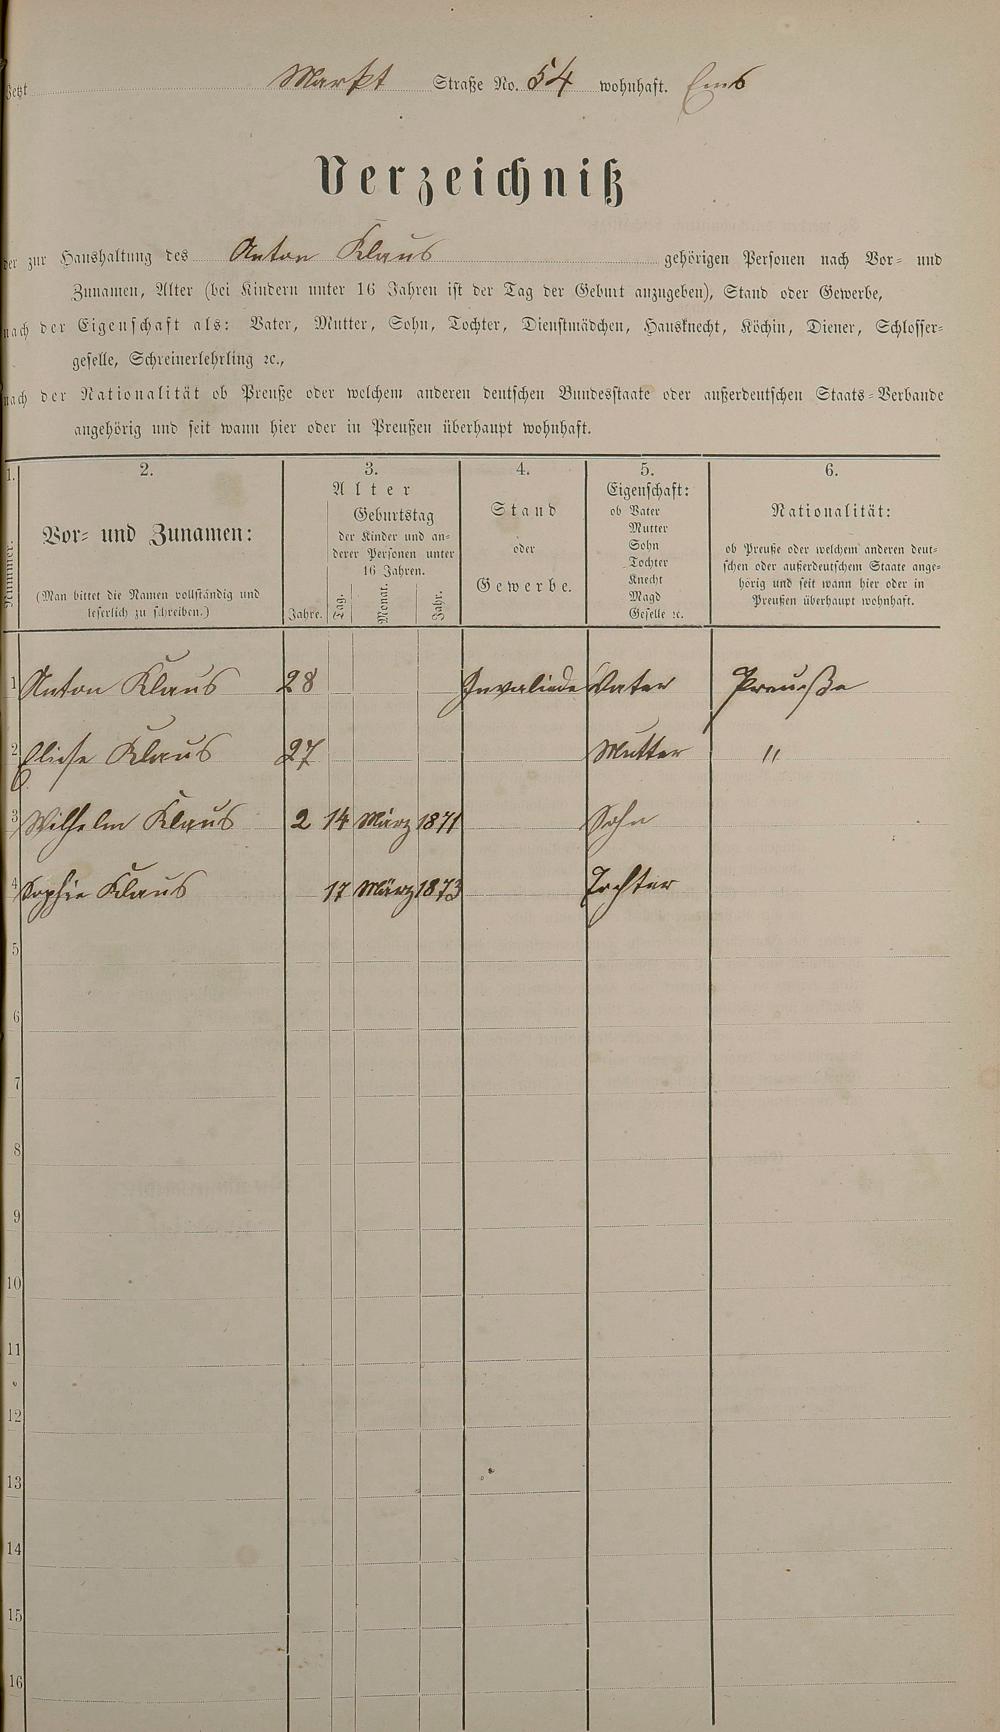 Jetzt Markt Straße No. 54 wohnhaft. Ems
Verzeichniß
der zur Haushaltung des Anton Klaus gehörigen Personen nach Vor- und
Zunamen, Alter (bei Kindern unter 16 Jahren ist der Tag der Geburt anzugeben), Stand oder Gewerbe,
nach der Eigenschaft als: Vater, Mutter, Sohn, Tochter, Dienstmädchen, Hausknecht, Köchin, Diener, Schlosser-
geselle, Schreinerlehrling ꝛc.,
nach der Nationalität ob Preuße oder welchem anderen deutschen Bundesstaate oder außerdeutschen Staats-Verbande
angehörig und seit wann hier oder in Preußen überhaupt wohnhaft.
1. 2. 3. 4. 5. 6.
Nummer.
Vor- und Zunamen:
(Man bittet die Namen vollständig und
leserlich zu schreiben.)
Alter
Jahre.
Geburtstag
der Kinder und an-
derer Personen unter
16 Jahren.
Tag. Monat. Jahr.
Stand
oder
Gewerbe.
Eigenschaft:
ob Vater
Mutter
Sohn
Tochter
Knecht
Magd
Geselle ꝛc.
Nationalität:
ob Preuße oder welchem anderen deut-
schen oder außerdeutschem Staate ange-
hörig und seit wann hier oder in
Preußen überhaupt wohnhaft.
1 Anton Klaus 28 Invaliede Vater Preueße
2 Eliese Klaus 27 Mutter "
3 Wilhelm Klaus 2 14 März 1871 Sohn
4 Sophie Klaus 17 März 1873 Tochter
5
6
7
8
9
10
11
12
13
14
15
16